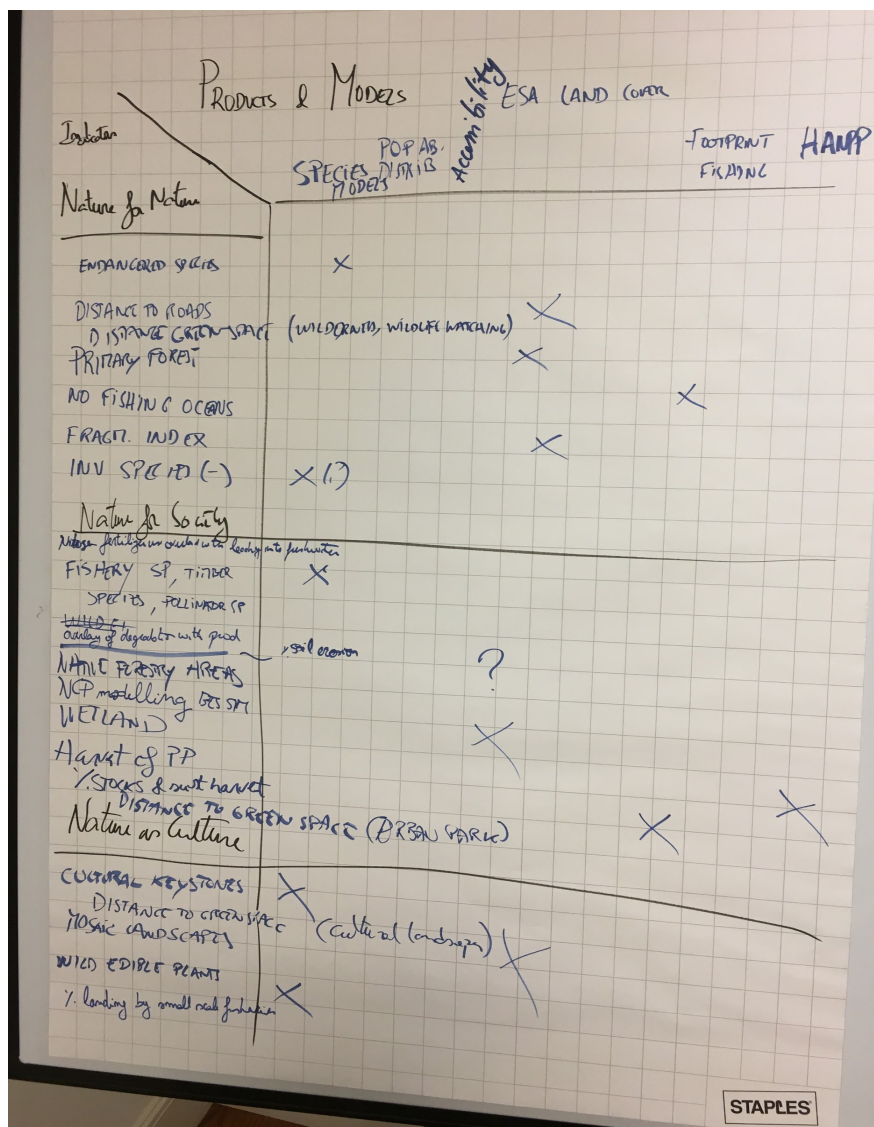 PRODUCTS & MODELS
Accessibility
ESA LAND COVER
Indicator
POP AB.
SPECIES DISTRIB
MODELS
FOOTPRINT
FISHING
HANPP
Nature for Nature
ENDANGERED SPECIES X
DISTANCE TO ROADS X
DISTANCE GREEN SPACE (WILDERNESS, WILDLIFE WATCHING)
PRIMARY FOREST X
NO FISHING OCEANS X
FRAGM. INDEX X
INV SPECIES (-) X (.)
Nature for Society
Nitrogen fertilizer overlaid with leaching into freshwater
FISHERY SP, TIMBER X
SPECIES, POLLINATOR SP
overlay of degradation with prod
soil erosion
NATIVE FORESTRY AREAS ?
NCP modelling BES SIM
WETLAND X
Harvest of PP
% STOCKS & sust harvest X
DISTANCE TO GREEN SPACE (URBAN PARK) X
Nature as Culture
CULTURAL KEYSTONES X
DISTANCE TO GREEN SPACE (Cultural landscapes)
MOSAIC LANDSCAPES X
WILD EDIBLE PLANTS X
% landing by small scale fisheries
STAPLES